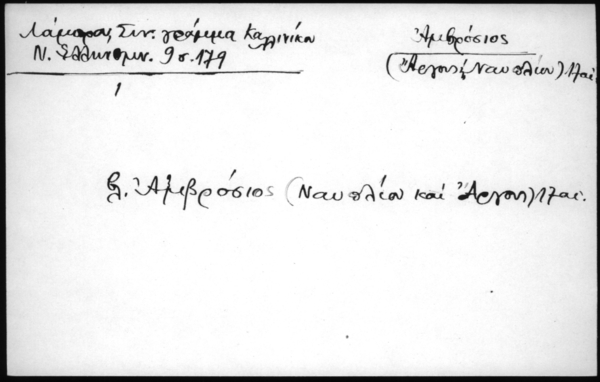 Λάμπρος Σπ. γράμμα Καλλινίκου
Ν. Ἑλληνομν. 9 σ. 179
Ἀμβρόσιος
(Ἄργους, Ναυπλίου) 17 αἰ.
1
βλ. Ἀμβρόσιος (Ναυπλίου καὶ Ἄργους) 17 αἰ.